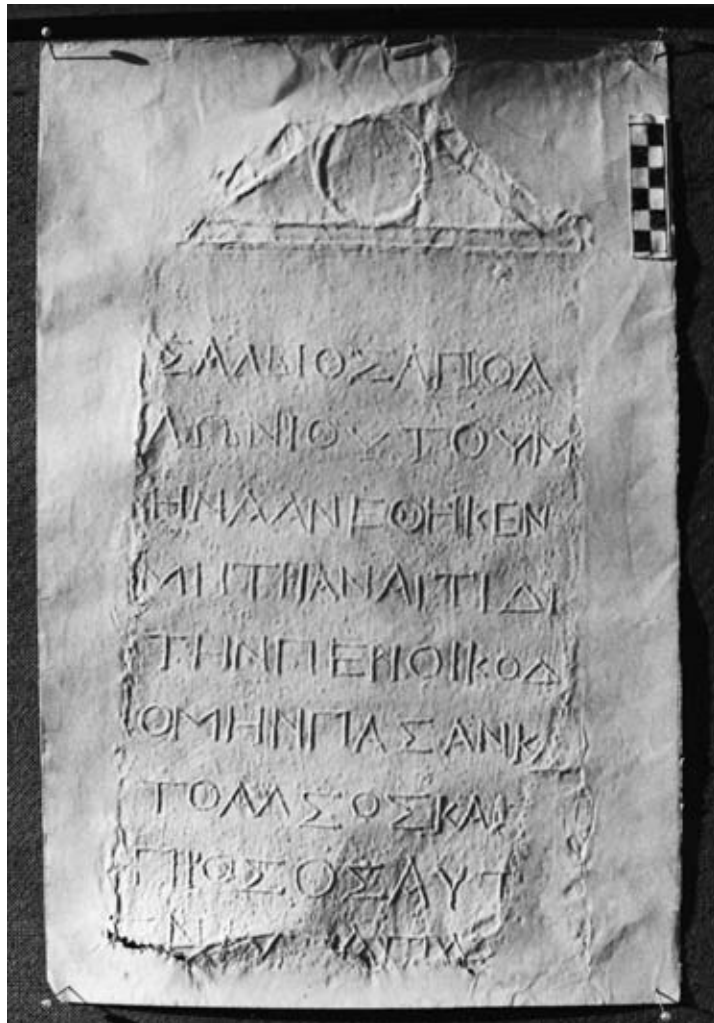 ΣΑΛΒΙΟΣΑΠΟΛ
ΛΩΝΙΟΥΤΟΥΜ
ΗΝΑΑΝΕΘΗΚΕΝ
ΜΗΤΡΙΑΝΑΙΤΙΔΙ
ΤΗΝΠΕΝΟΙΚΟΔ
ΟΜΗΝΠΑΣΑΝΚ
ΤΟΑΛΣΟΣΚΑΙ
ΠΡΟΣΟΣΑΥΤ